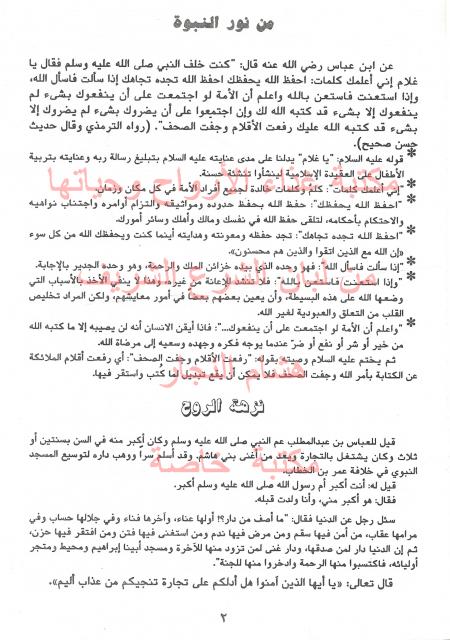 من نور النبوة
عن ابن عباس رضي الله عنه قال: "كنت خلف النبي صلى الله عليه وسلم فقال يا
غلام إني أعلمك كلمات: احفظ الله يحفظك احفظ الله تجده تجاهك إذا سألت فاسأل الله،
وإذا استعنت فاستعن بالله واعلم أن الأمة لو اجتمعت على أن ينفعوك بشيء لم
ينفعوك إلا بشيء قد كتبه الله لك وإن اجتمعوا على أن يضروك بشيء لم يضروك إلا
بشيء قد كتبه الله عليك رفعت الأقلام وجفت الصحف". (رواه الترمذي وقال حديث
حسن صحيح).
* قوله عليه السلام: "يا غلام" يدلنا على مدى عنايته عليه السلام بتبليغ رسالة ربه وعنايته بتربية
الأطفال على العقيدة الإسلامية لينشأوا تنشئة حسنة.
* "إني أعلمك كلمات": كلم وكلمات خالدة لجميع أفراد الأمة في كل مكان وزمان.
* "احفظ الله يحفظك": حفظ الله بحفظ حدوده ومواثيقه والتزام أوامره واجتناب نواهيه
والاحتكام بأحكامه، لتلقى حفظ الله في نفسك ومالك وأهلك وسائر أمورك.
* "احفظ الله تجده تجاهك": تجد حفظه ومعونته وهدايته أينما كنت ويحفظك الله من كل سوء
«إن الله مع الذين اتقوا والذين هم محسنون».
* "إذا سألت فاسأل الله": فهو وحده الذي بيده خزائن الملك والرحمة، وهو وحده الجدير بالإجابة.
* "وإذا استعنت فاستعن بالله": فلا تنشد الإعانة من غيره، وهذا لا ينفي الأخذ بالأسباب التي
وضعها الله على هذه البسيطة، وأن يعين بعضهم بعضاً في أمور معايشهم، ولكن المراد تخليص
القلب من التعلق والعبودية لغير الله.
* "واعلم أن الأمة لو اجتمعت على أن ينفعوك...": فاذا أيقن الانسان أنه لن يصيبه إلا ما كتبه الله
من خير أو شر أو نفع أو ضر عندما يوجه فكره وجهده وسعيه إلى مرضاة الله.
ثم يختم عليه السلام وصيته بقوله: "رفعت الأقلام وجفت الصحف": أي رفعت أقلام الملائكة
عن الكتابة بأمر الله وجفت الصحف فلا يمكن أن يقع تبديل لما كُتب واستقر فيها.
نزهة الروح
قيل للعباس بن عبدالمطلب عم النبي صلى الله عليه وسلم وكان أكبر منه في السن بسنتين أو
ثلاث وكان يشتغل بالتجارة ويعد من أغنى بني هاشم. وقد أسلم سراً ووهب داره لتوسيع المسجد
النبوي في خلافة عمر بن الخطاب.
قيل له: أنت أكبر أم رسول الله صلى الله عليه وسلم أكبر.
فقال: هو أكبر مني، وأنا ولدت قبله.
سئل رجل عن الدنيا فقال: "ما أصف من دار؟! أولها عناء، وآخرها فناء وفي جلالها حساب وفي
مرامها عقاب، من أمن فيها سقم ومن مرض فيها ندم ومن استغنى فيها فتن ومن افتقر فيها حزن،
ثم إن الدنيا دار لمن صدقها، ودار غنى لمن تزود منها للآخرة ومسجد أبينا إبراهيم ومحيط ومتجر
أوليائه، فاكتسبوا منها الرحمة وادخروا منها للجنة".
قال تعالى: «يا أيها الذين آمنوا هل أدلكم على تجارة تنجيكم من عذاب أليم».
٢
مكتبة غذاء الأرواح وحياتها
هشام النجار
مكتبة خاصة